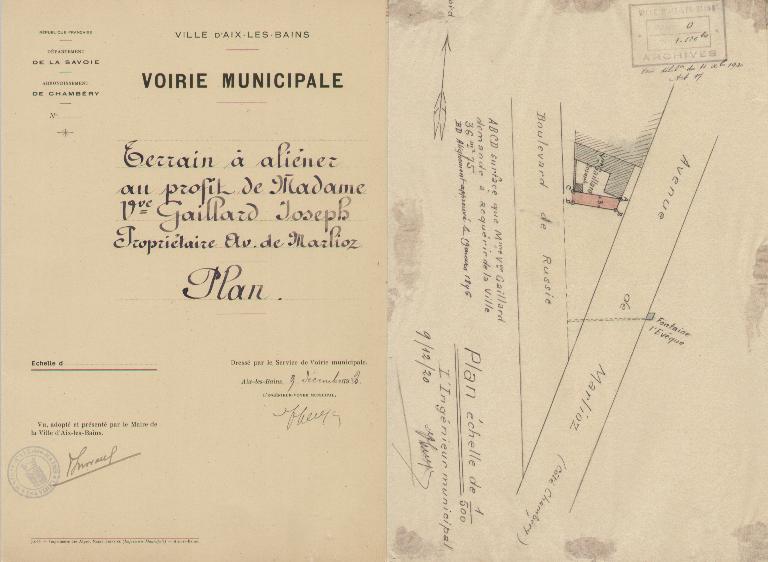 RÉPUBLIQUE FRANÇAISE
DÉPARTEMENT
DE LA SAVOIE
ARRONDISSEMENT
DE CHAMBÉRY
N°
VILLE D'AIX-LES-BAINS
VOIRIE MUNICIPALE
Terrain à aliéner
au profit de Madame
Vve Gaillard Joseph
Propriétaire Av. de Marlioz
Plan.
Echelle d
Dressé par le Service de Voirie municipale.
Aix-les-Bains, 9 décembre
L'INGÉNIEUR-VOYER MUNICIPAL,
Vu, adopté et présenté par le Maire de
la Ville d'Aix-les-Bains.
ARCHIVES
Boulevard de Russie
ABCD surface que Mme Vve Gaillard
demande à acquérir de la Ville
36 m² 75
Avenue de Marlioz
(Côté Chambéry)
Gaillard
A
B
C
Fontaine
l'Evêque
Plan échelle de 1/500
L'Ingénieur municipal
9/12/20